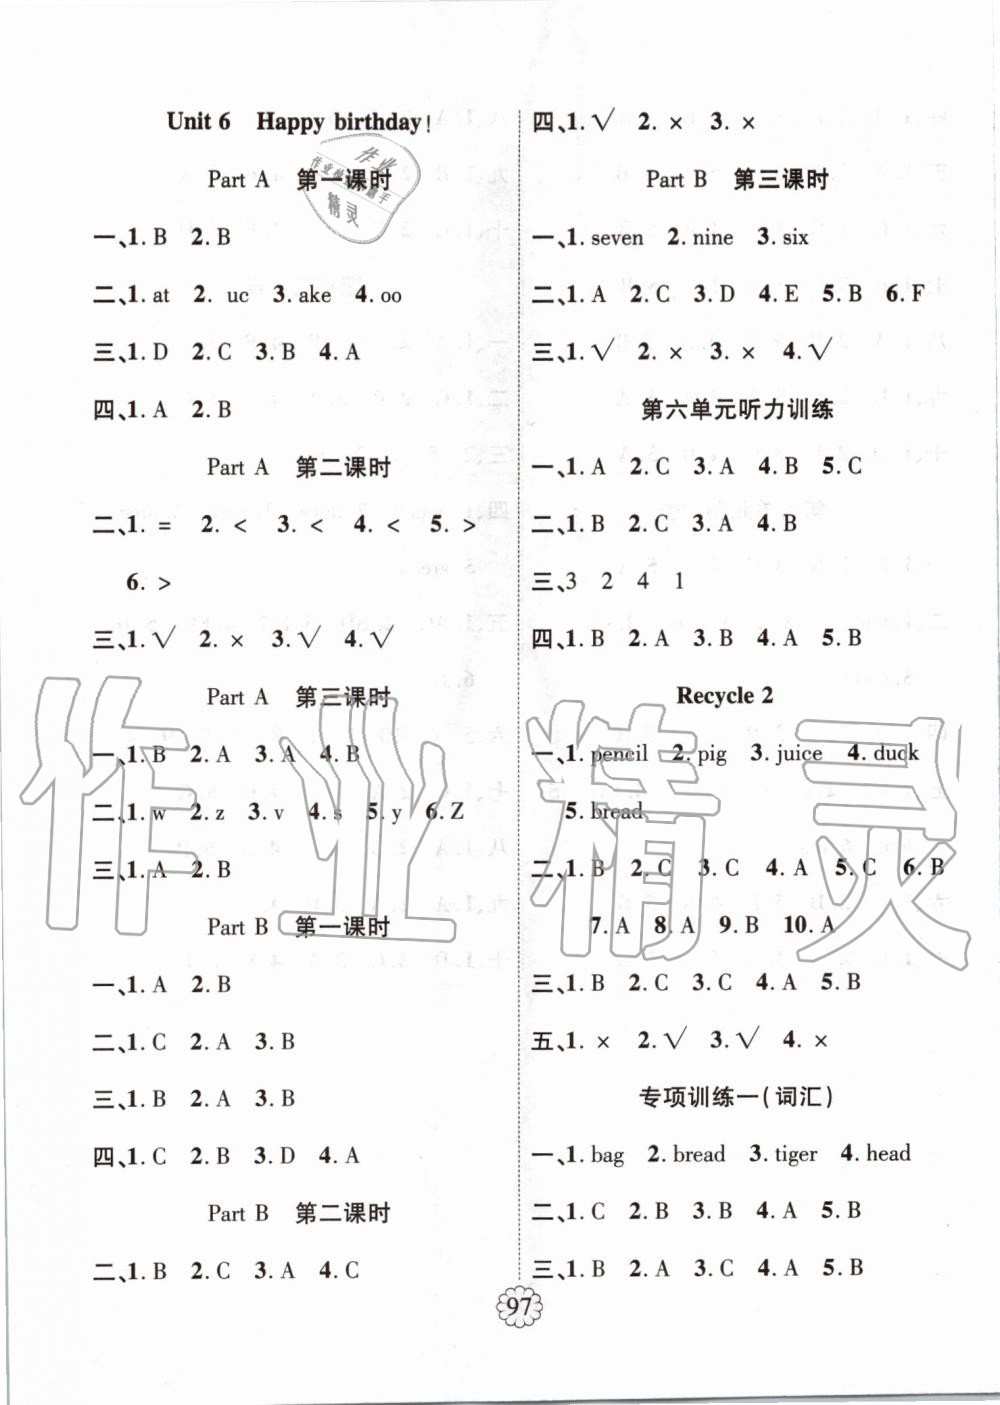 Unit 6 Happy birthday!
Part A 第一课时
一、1. B 2. B
二、1. at 2. uc 3. ake 4. oo
三、1. D 2. C 3. B 4. A
四、1. A 2. B
Part A 第二课时
二、1. = 2. < 3. < 4. < 5. >
6. >
三、1. √ 2. × 3. √ 4. √
Part A 第三课时
一、1. B 2. A 3. A 4. B
二、1. w 2. z 3. v 4. s 5. y 6. Z
三、1. A 2. B
Part B 第一课时
一、1. A 2. B
二、1. C 2. A 3. B
三、1. B 2. A 3. B
四、1. C 2. B 3. D 4. A
Part B 第二课时
二、1. B 2. C 3. A 4. C
四、1. √ 2. × 3. ×
Part B 第三课时
一、1. seven 2. nine 3. six
二、1. A 2. C 3. D 4. E 5. B 6. F
三、1. √ 2. × 3. × 4. √
第六单元听力训练
一、1. A 2. C 3. A 4. B 5. C
二、1. B 2. C 3. A 4. B
三、3 2 4 1
四、1. B 2. A 3. B 4. A 5. B
Recycle 2
一、1. pencil 2. pig 3. juice 4. duck
5. bread
二、1. B 2. C 3. C 4. A 5. C 6. B
7. A 8. A 9. B 10. A
三、1. B 2. C 3. C 4. A 5. B
五、1. × 2. √ 3. √ 4. ×
专项训练一(词汇)
一、1. bag 2. bread 3. tiger 4. head
二、1. C 2. B 3. B 4. A 5. B
三、1. B 2. A 3. C 4. A 5. B
97
作业精灵